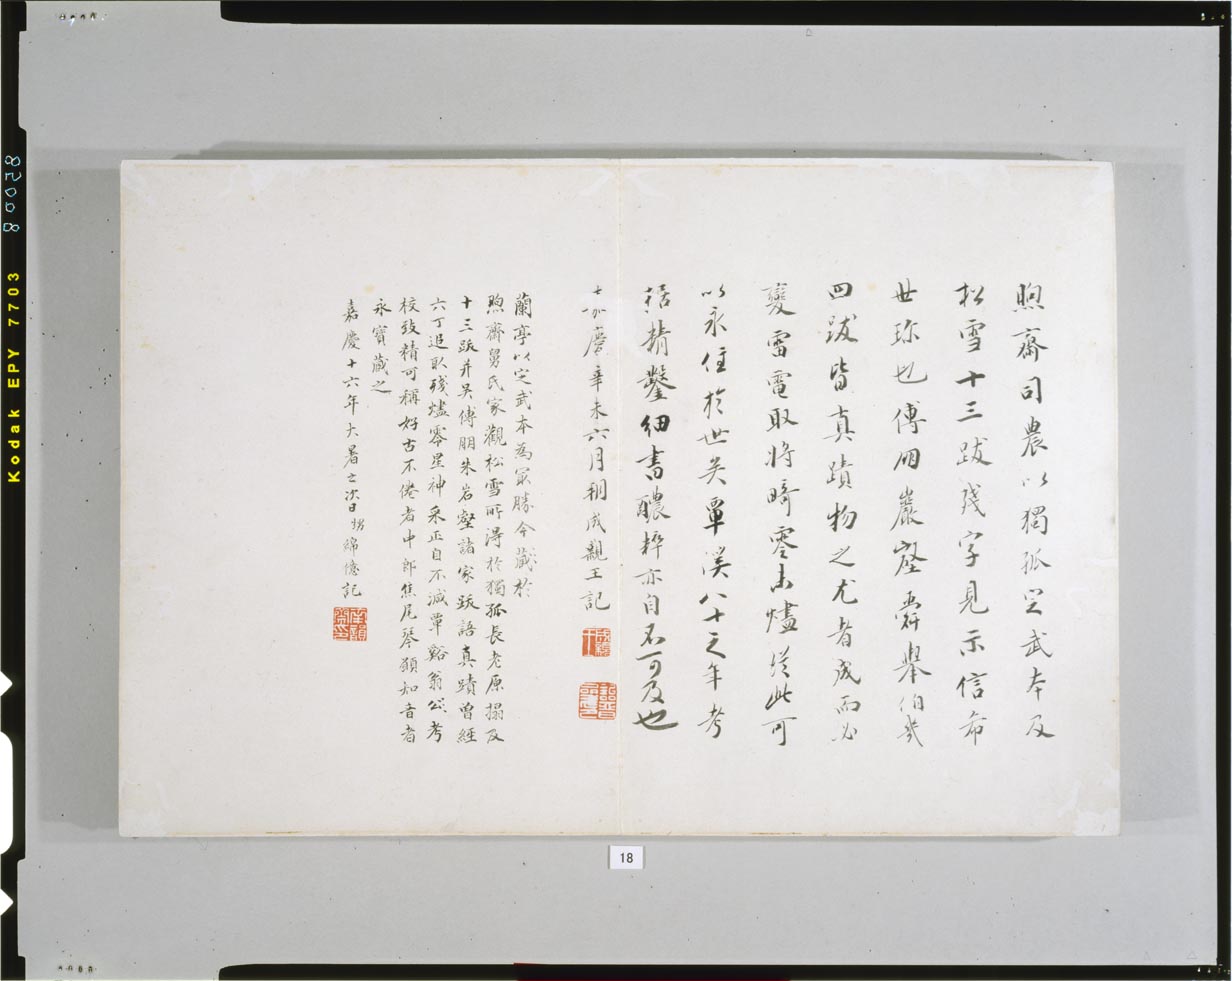 煦齋司農以獨孤定武本及
松雪十三跋殘字見示信希
世珍也傅朋巖壑舜舉伯幾
四跋皆真蹟物之尤者成而必
變雷電取將畸零未燼從此可
以永住於世矣覃溪八十之年考
據精鑿細書醲粹亦自不可及也
嘉慶辛未六月朔成親王記
蘭亭以定武本為冣勝今藏於
煦齋舅氏家觀松雪所得於獨孤長老原搨及
十三跋并吳傅朋朱岩壑諸家跋語真蹟曾經
六丁追取殘燼零星神采正自不減覃谿翁公考
校致精可稱好古不倦者中郎焦尾琴願知音者
永寶藏之
嘉慶十六年大暑之次日甥綿億記
18
Kodak EPY 7703
80058